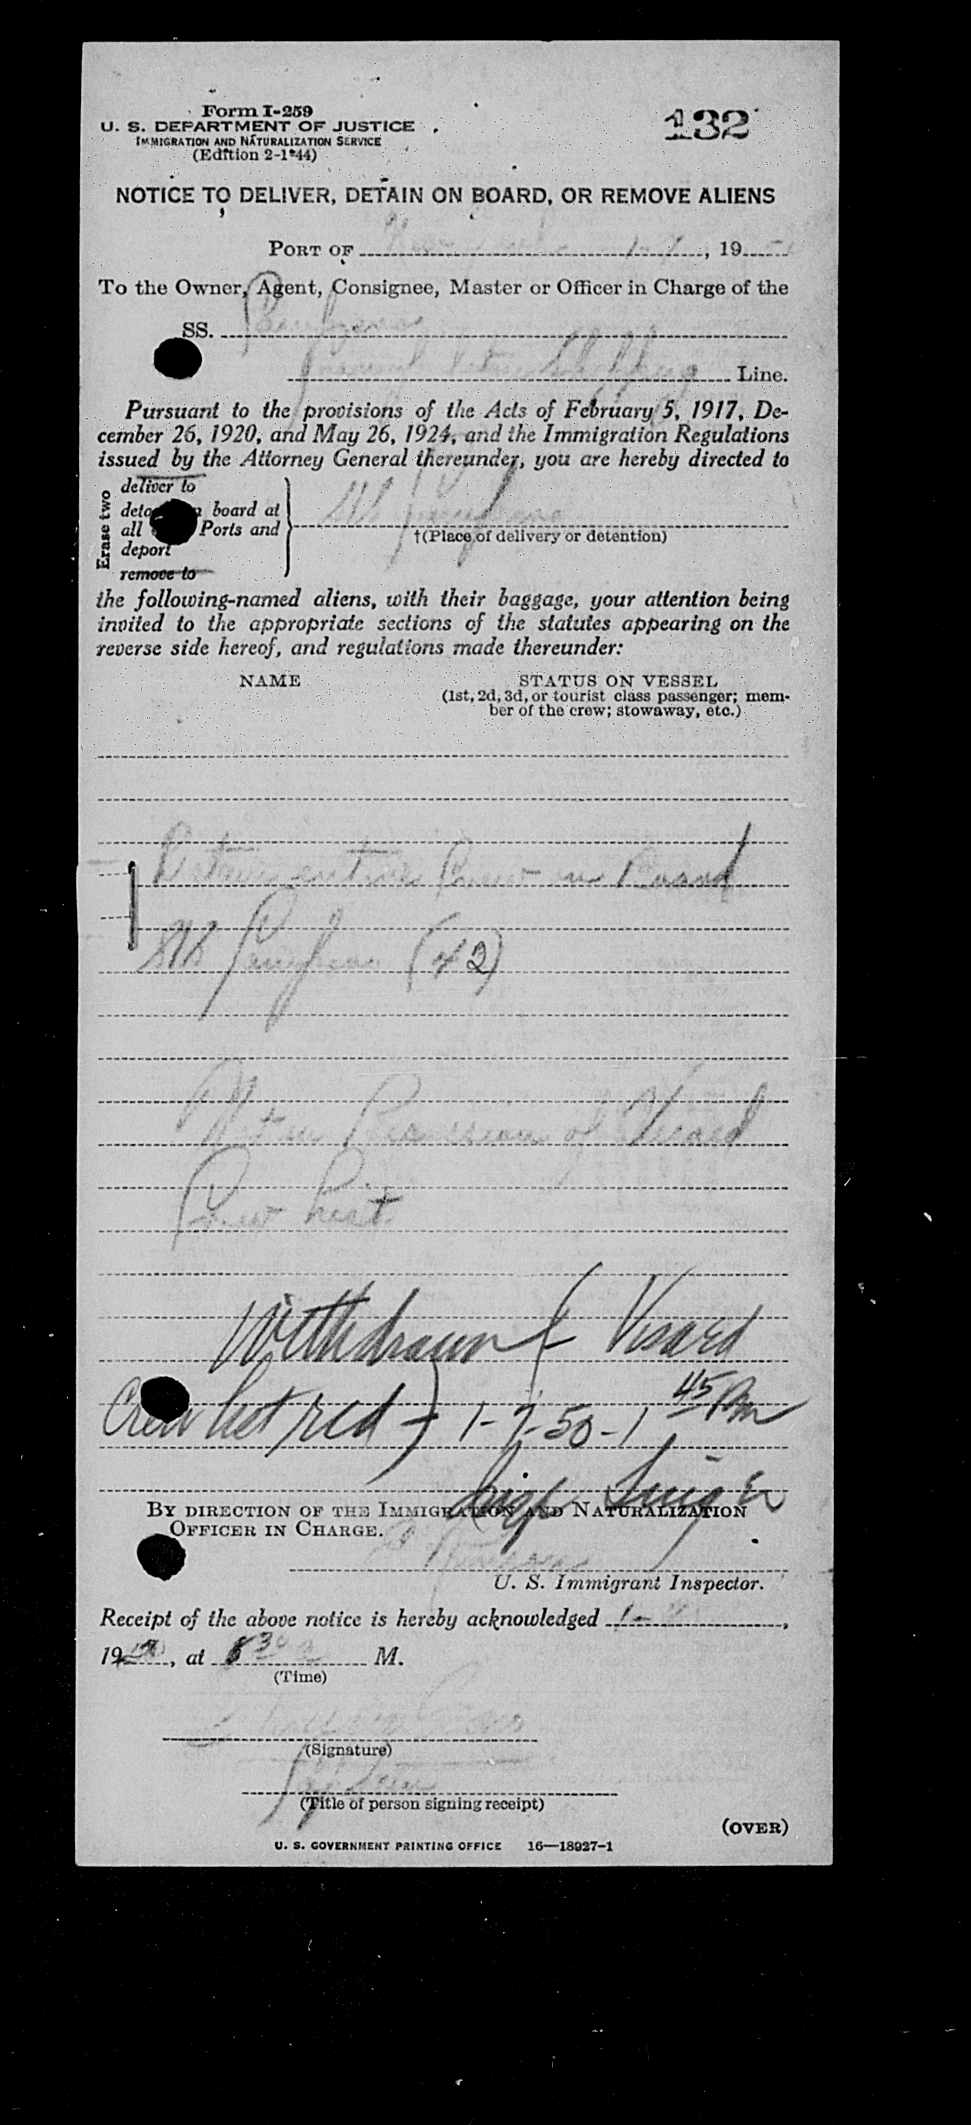 Form I-259
132
U. S. DEPARTMENT OF JUSTICE
IMMIGRATION AND NATURALIZATION SERVICE
(Edition 2-1-44)
NOTICE TO DELIVER, DETAIN ON BOARD, OR REMOVE ALIENS
PORT OF New York 1-7, 19
To the Owner, Agent, Consignee, Master or Officer in Charge of the
SS.
Line.
Pursuant to the provisions of the Acts of February 5, 1917, De-
cember 26, 1920, and May 26, 1924, and the Immigration Regulations
issued by the Attorney General thereunder, you are hereby directed to
Erase two
deliver to
board at
all Ports and
deport
remove to
SS
†(Place of delivery or detention)
the following-named aliens, with their baggage, your attention being
invited to the appropriate sections of the statutes appearing on the
reverse side hereof, and regulations made thereunder:
NAME STATUS ON VESSEL
(1st, 2d, 3d, or tourist class passenger; mem-
ber of the crew; stowaway, etc.)
Detain entire Crew on Board
SS (42)
Not in Possession of Visaed
Crew List
Withdrawn Visaed
Crew list rcd 1-7-50 - 1 45 PM
Singer
BY DIRECTION OF THE IMMIGRATION AND NATURALIZATION
OFFICER IN CHARGE.
U. S. Immigrant Inspector.
Receipt of the above notice is hereby acknowledged 1-,
1950, at 8 30 a M.
(Time)
(Signature)
(Title of person signing receipt)
(OVER)
U. S. GOVERNMENT PRINTING OFFICE 16—18927-1